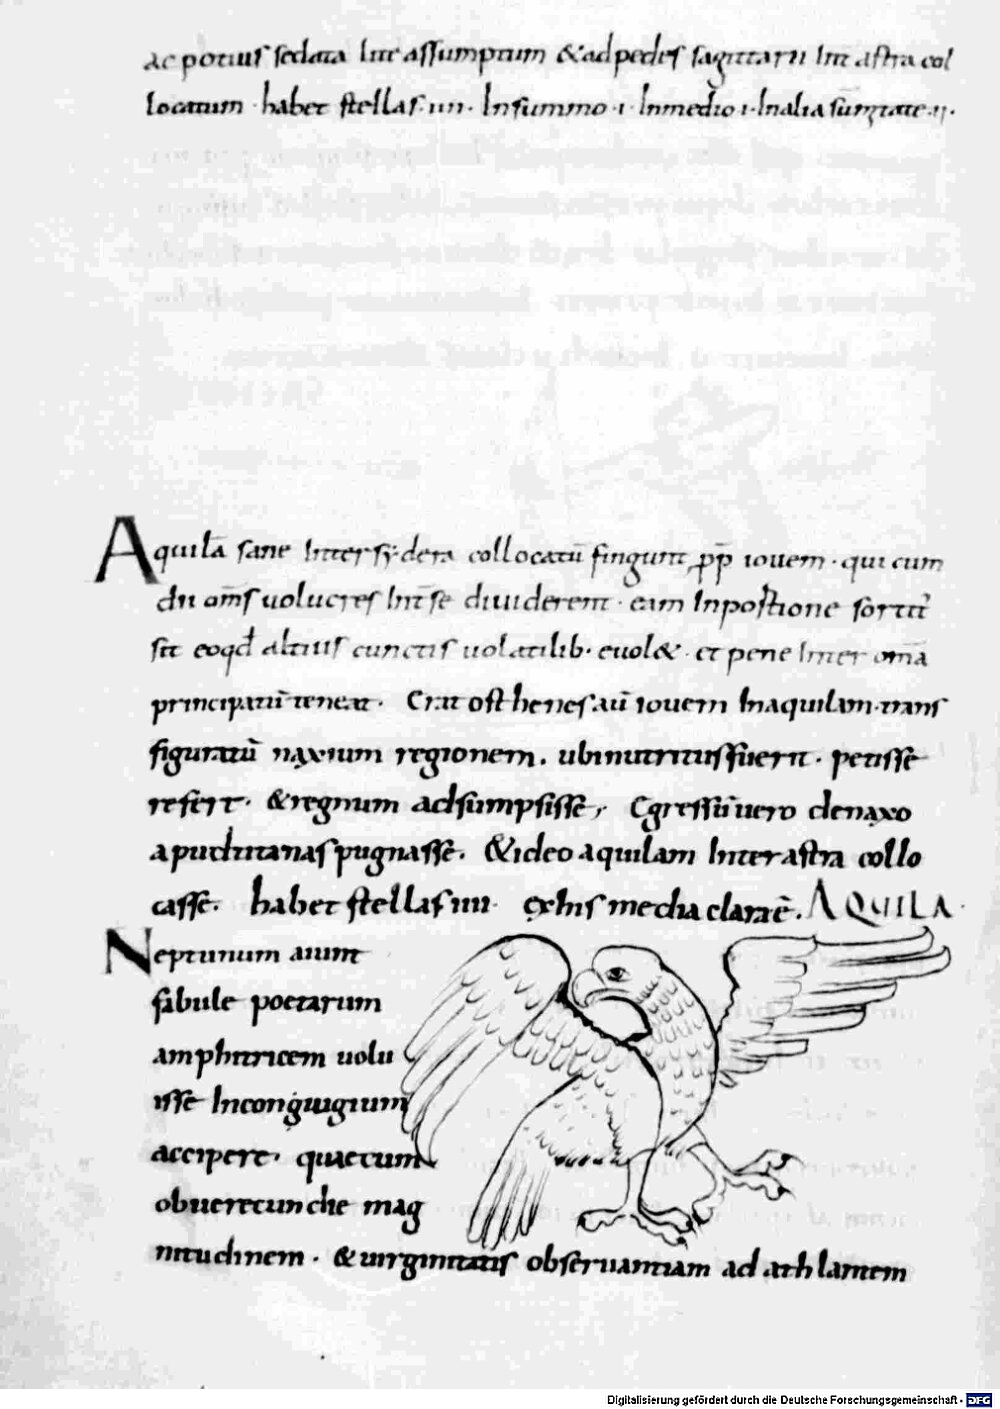 ac potius sedata lite assumptum & ad pedes sagittarii int̄ astra col
locatum · habet stellas · iiii · In summo · i · In medio · i · In alia sūmitate · ii ·
Aquilā sane Inter sydera collocatū fingunt pp̄ iouem · qui cum
dii om̄s uolucres Int̄ se diuiderent · eam In portione sortit᷒
sit eo qd̄ altius cunctis uolatilib · euol& · et pene Inter om̄a
principatū teneat · Eratosthenes aū iouem In aquilam trans
figuratū naxium regionem . ubi nutritus fuerit . petisse
refert · & regnum adsumpsisse; Egressū uero de naxo
apud titanas pugnasse . & ideo aquilam Inter astra collo
casse . habet stellas iiii · ex his media clara ē . AQUILA ·
Neptunum aiunt
fabule poetarum
amphitricem uolu
isse In coniugium
accipere · quae cum
ob uerecundie mag
nitudinem · & uirginitatis obseruantiam ad athlantem
Digitalisierung gefördert durch die Deutsche Forschungsgemeinschaft - DFG